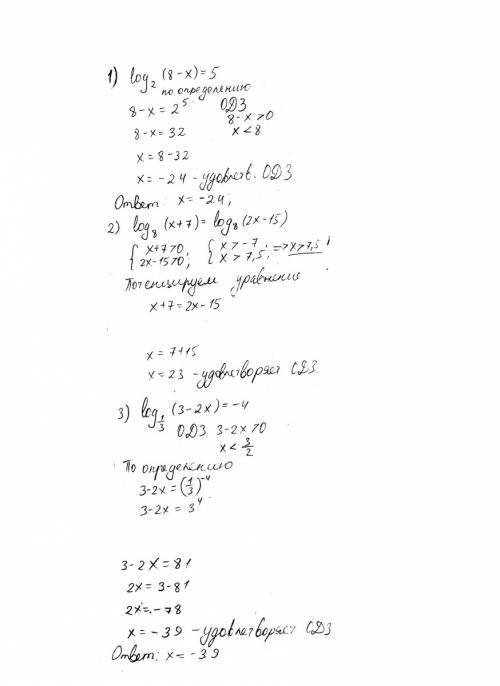 1) log₂ (8-x) = 5
по определению
8-x = 2⁵ ОДЗ
8-x>0
8-x = 32 x<8
x = 8-32
x = -24 - удовлетв. ОДЗ
Ответ: x = -24;
2) log₈ (x+7) = log₈ (2x-15)
{ x+7>0, 2x-15>0; { x > -7, x > 7,5; => x>7,5
Потенцируем уравнения
x+7 = 2x-15
x = 7+15
x = 23 - удовлетворяет ОДЗ.
3) log_{1/3} (3-2x) = -4
ОДЗ 3-2x>0
x < 3/2
По определению
3-2x = (1/3)⁻⁴
3-2x = 3⁴
3-2x = 81
2x = 3-81
2x = -78
x = -39 - удовлетворяет ОДЗ
Ответ: x = -39